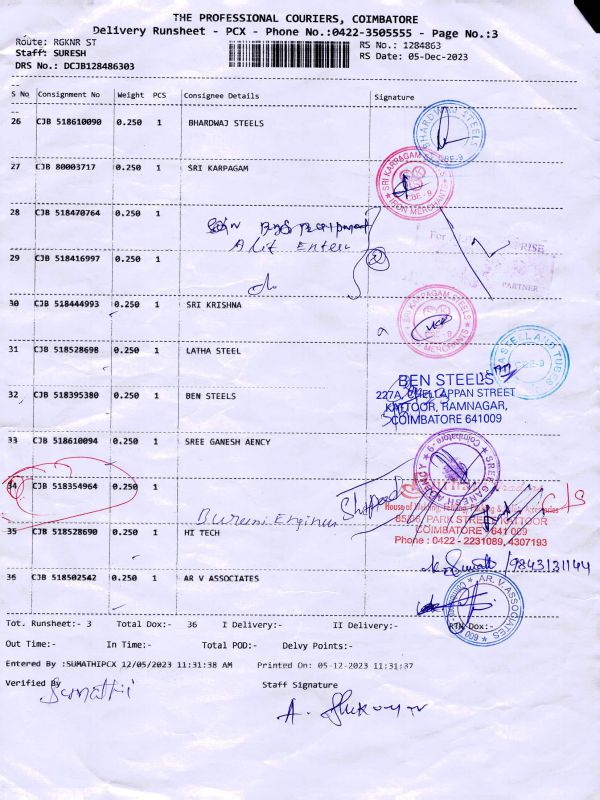 THE PROFESSIONAL COURIERS, COIMBATORE
Delivery Runsheet - PCX - Phone No.:0422-3505555 - Page No.:3
Route: RGKNR ST
RS No.: 1284863
Staff: SURESH
RS Date: 05-Dec-2023
DRS No.: DCJB128486303
S No Consignment No Weight PCS Consignee Details Signature
26 CJB 518610090 0.250 1 BHARDWAJ STEELS
BHARDWAJ STEELS
CBE-9
27 CJB 80003717 0.250 1 SRI KARPAGAM
SRI KARPAGAM
CBE-9
IRON MERCHANTS
28 CJB 518470764 0.250 1
Alif Enter
For
PRISE
29 CJB 518416997 0.250 1
PARTNER
30 CJB 518444993 0.250 1 SRI KRISHNA
SRI KARPAGAM STEELS
MERCHANTS
31 CJB 518528698 0.250 1 LATHA STEEL
STEEL AND TUBES
CBE-9
32 CJB 518395380 0.250 1 BEN STEELS
BEN STEELS
227A, CHELLAPPAN STREET
KATTOOR, RAMNAGAR,
COIMBATORE 641009
33 CJB 518610094 0.250 1 SREE GANESH AENCY
SREE GANESH AGENCY
Coimbatore-9
34 CJB 518354964 0.250 1
Shopped
65/66, PARK STREET, KATTOOR
COIMBATORE - 641 009
Phone : 0422 - 2231089, 4307193
35 CJB 518528690 0.250 1 HI TECH
/9843131144
36 CJB 518502542 0.250 1 AR V ASSOCIATES
AR. V ASSOCIATES
Tot. Runsheet:- 3 Total Dox:- 36 I Delivery:- II Delivery:- RTN Dox:-
Out Time:- In Time:- Total POD:- Delvy Points:-
Entered By :SUMATHIPCX 12/05/2023 11:31:38 AM Printed On: 05-12-2023 11:31:37
Verified By Staff Signature
Sumathi